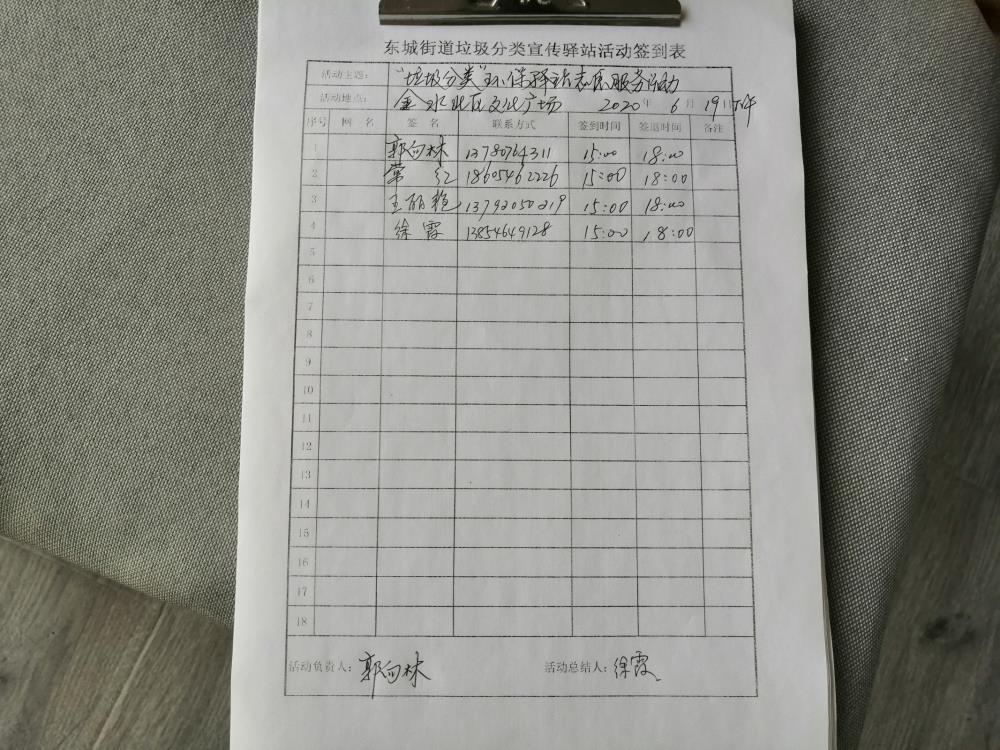 东城街道垃圾分类宣传驿站活动签到表
活动主题: "垃圾分类"环保驿站志愿服务活动
活动地点: 金水北区文化广场 2020年 6月 19日下午
序号 网 名 签 名 联系方式 签到时间 签退时间 备注
1 郭向林 13780764311 15:00 18:00
2 常 红 18605462226 15:00 18:00
3 王丽艳 13792050219 15:00 18:00
4 徐霞 13854649128 15:00 18:00
5
6
7
8
9
10
11
12
13
14
15
16
17
18
活动负责人: 郭向林 活动总结人: 徐霞